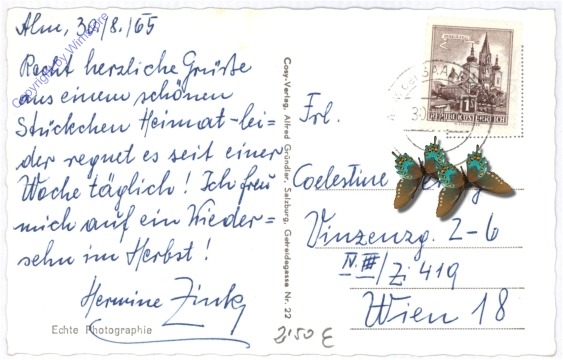 Alm, 30./8./65
Recht herzliche Grüße
aus einem schönen
Stückchen Heimat - lei=
der regnet es seit einer
Woche täglich! Ich freu
mich auf ein Wieder=
sehn im Herbst!
Hermine Zink
Echte Photographie
Cosy-Verlag, Alfred Gründler, Salzburg, Getreidegasse Nr. 22
Frl.
Coelestine
Vinzenzg. 2-6
IV. III/Zi 419
Wien 18
2,50 €
REPUBLIK ÖSTERREICH
Copyright by